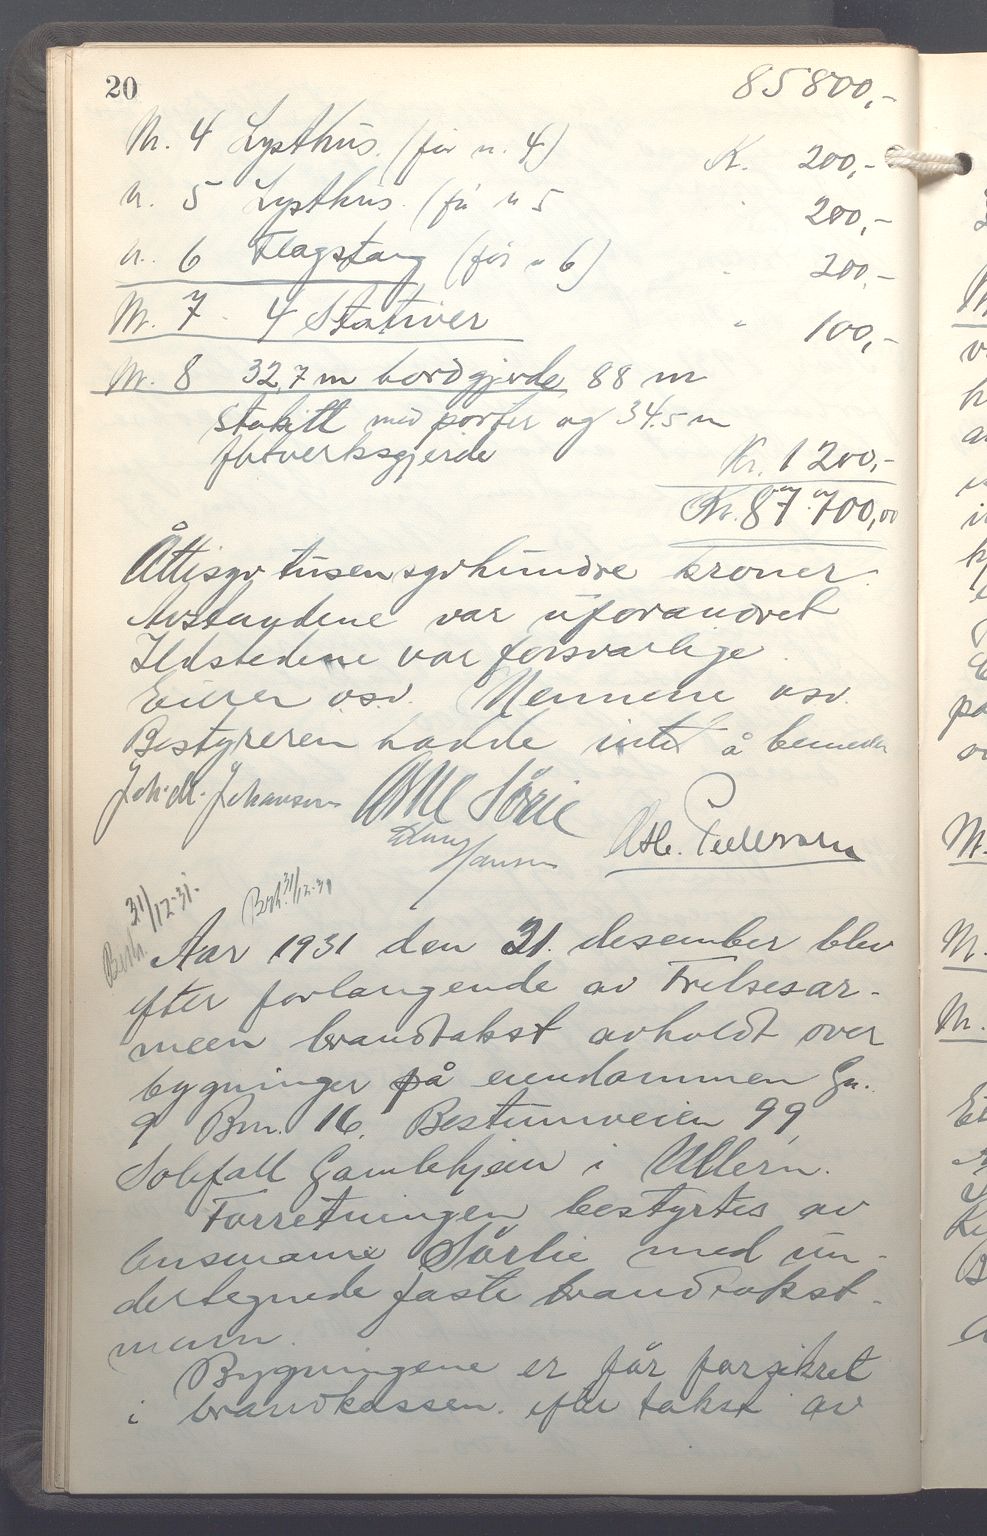 20
85800,-
Nr. 4 Lysthus. (før n. 4) Kr. 200,-
n. 5 Lysthus. (før n 5 " 200,-
n. 6 Flagstang (før n 6) " 200,-
Nr. 7 4 Stativer " 100,-
Nr. 8 32,7 m bordgjerde, 88 m
stakitt med porter og 34.5 m
flatverksgjerde Kr. 1200,-
Kr. 87.700,00
Åttisyv tusen syvhundre kroner.
Avstandene var uforandret
Ildstedene var forsvarlige.
Eieren osv. Mennene osv.
Bestyreren hadde intet å bemerke
Joh. M. Johansen
Hansen
31/12-31.
31/12-31
Aar 1931 den 31. desember blev
efter forlangende av Frelsesar-
meen brandtakst avholdt over
bygninger på eiendommen Gn.
9 Bn. 16. Bestumveien 99,
Solfall Gamlehjem i Ullern.
Forretningen bestyrtes av
lensmann Sørlie med un-
dertegnede faste brandtakst-
menn.
Bygningene er før forsikret
i brandkassen efter takst av